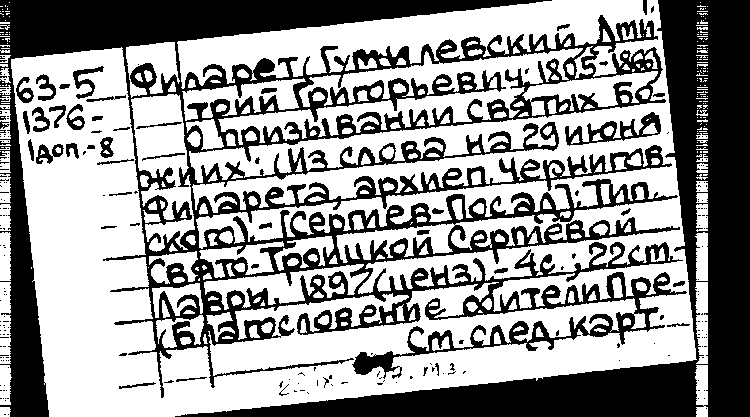 63-5
1376-
1доп.-8
Филарет (Гумилевский, Дми-
трий Григорьевич; 1805-1866)
О призывании святых Бо-
жиих : (Из слова на 29 июня
Филарета, архиеп. Чернигов-
ского). - [Сергиев-Посад] : Тип.
Свято-Троицкой Сергиевой
Лавры, 1897 (ценз.). - 4с. ; 22см. -
(Благословение обители Пре-
См. след. карт.